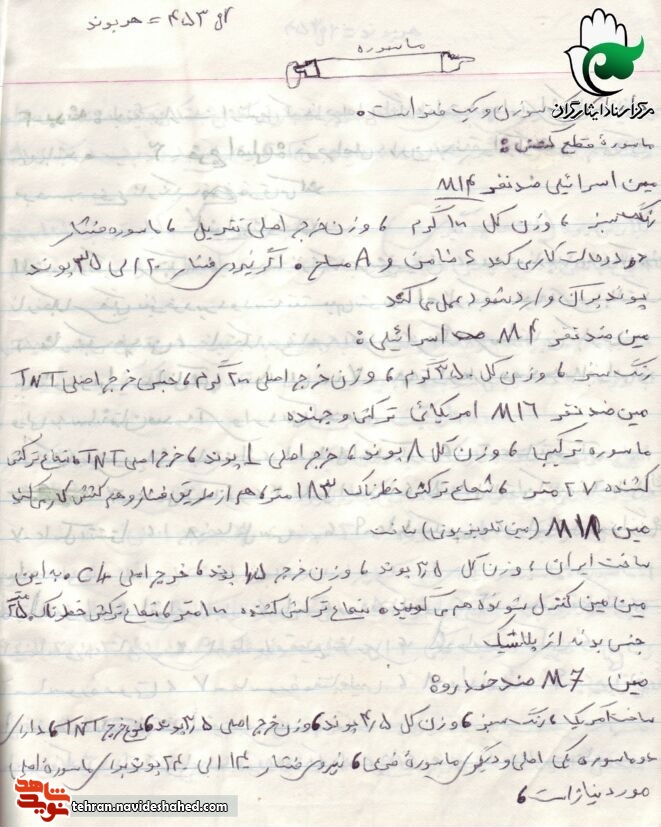 هر پوند = ۴۵۳ gr
ماسوره
مرکز اسناد ایثارگران
سوزن و یک فنر است.
ماسورهٔ قطع کشش :
مین اسرائیلی ضد نفر M14
رنگ سبز ، وزن کل ۱۰۰ گرم ، وزن خرج اصلی تتریل ، ماسوره فشار
در دو حالت کار می‌کند S ضامن و A مسلح . اگر نیروی فشار ۲۰ الی ۳۵ پوند
پوند بر آن وارد شود عمل می‌کند
مین ضد نفر M4 اسرائیلی :
رنگ سبز ، وزن کل ۳۵۰ گرم ، وزن خرج اصلی ۲۰۰ گرم ، جنس خرج اصلی TNT
مین ضد نفر M16 امریکائی ترکشی و جهنده
ماسوره ترکیبی ، وزن کل ۸ پوند ، خرج اصلی 1 پوند ، خرج اصلی TNT ، شعاع ترکش
کشنده ۲۷ متر ، شعاع ترکش خطرناک ۱۸۳ متر ، هم از طریق فشار و هم کشش کار می‌کند
مین M18 (مین تلویزیونی) ساخت
ساخت ایران ، وزن کل ۳٫۵ پوند ، وزن خرج ۱٫۵ پوند ، خرج اصلی C4 . به این
مین مین کنترل شونده هم می‌گویند . شعاع ترکش کشنده ۱۰۰ متر ، شعاع ترکش خطرناک ۲۵۰ متر
جنس بدنه از پلاستیک
مین M7 ضد خودرو :
ساخت آمریکا ، رنگ سبز ، وزن کل ۴٫۵ پوند ، وزن خرج اصلی ۳٫۵ پوند ، نوع خرج TNT ، دارای
دو ماسوره یکی اصلی و دیگری ماسورهٔ فرعی ، نیروی فشار ۱۴۰ الی ۲۴۰ پوند برای ماسوره اصلی
مورد نیاز است ،
نوید شاهد
tehran.navideshahed.com